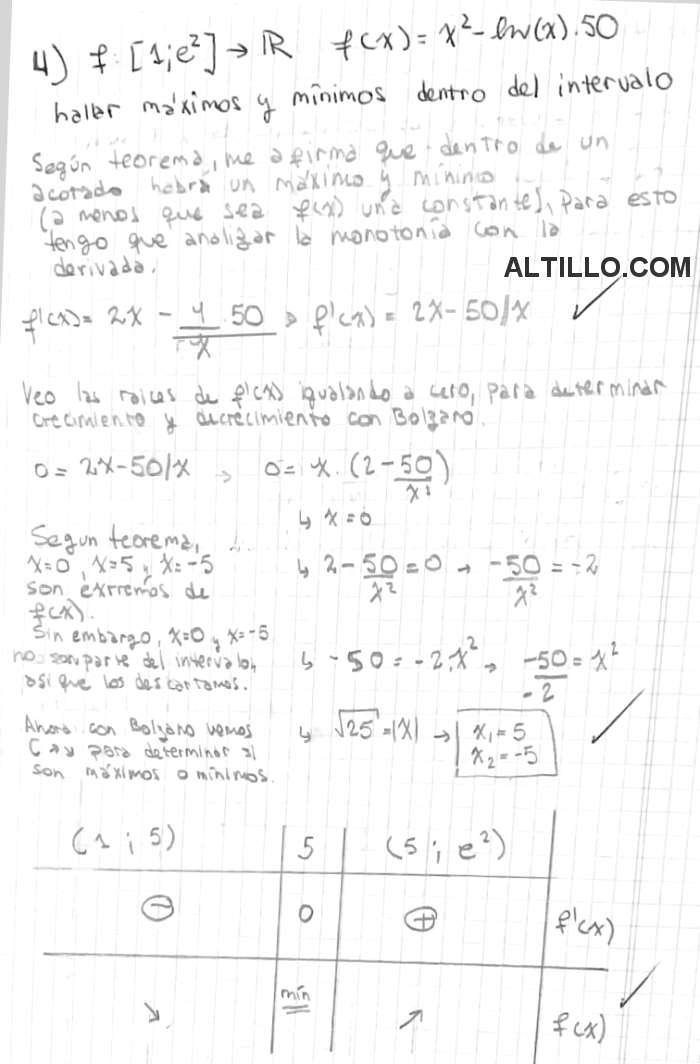 4) f: [1;e²] → ℝ   f(x) = x² - ln(x).50
hallar máximos y mínimos dentro del intervalo
Según teorema, me afirma que dentro de un
acotado habrá un máximo y mínimo
(a menos que sea f(x) una constante), para esto
tengo que analizar la monotonía con la
derivada.
ALTILLO.COM
f'(x) = 2x - 1/x . 50 → f'(x) = 2x - 50/x ✓
Veo las raices de f'(x) igualando a cero, para determinar
crecimiento y decrecimiento con Bolzano.
0 = 2x - 50/x → 0 = x . (2 - 50/x²)
↳ x = 0
Segun teorema,
x=0, x=5 y x=-5
son extremos de
f(x).
Sin embargo, x=0 y x=-5
no son parte del intervalo,
asi que los descartamos.
↳ 2 - 50/x² = 0 → -50/x² = -2
↳ -50 = -2.x² → -50/-2 = x²
↳ √25 = |x| → x₁ = 5
x₂ = -5 ✓
Ahora con Bolzano vemos
para determinar si
son máximos o mínimos.
(1 ; 5) | 5 | (5 ; e²)
⊖ | 0 | ⊕ | f'(x)
↘ | mín | ↗ | f(x) ✓